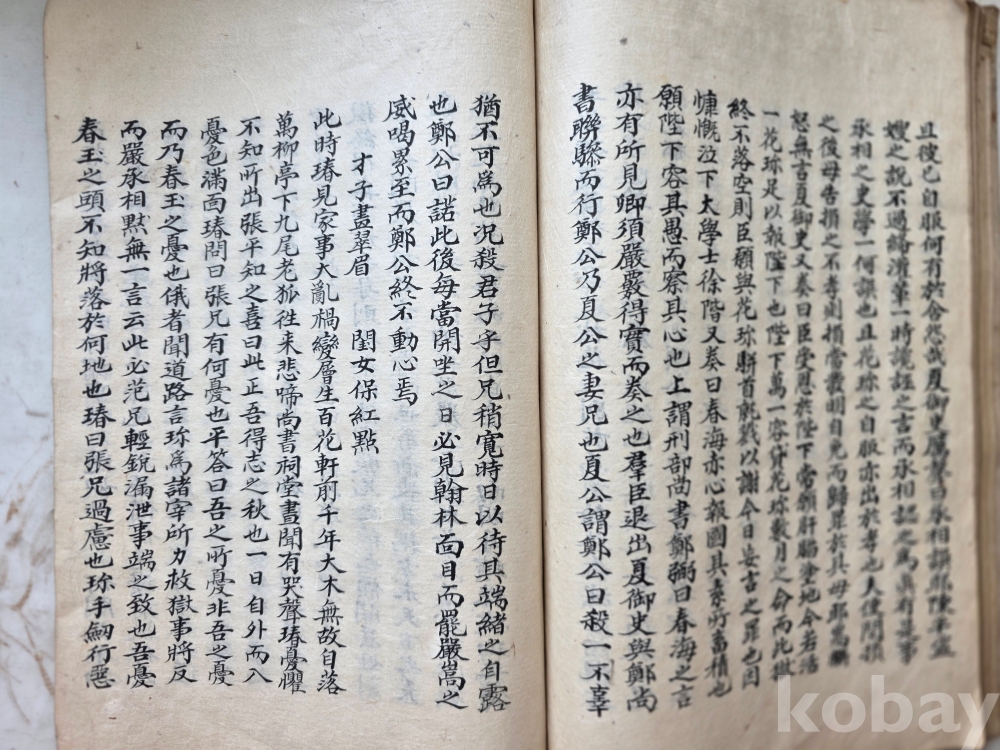 且彼已自服何有於舍怨哉夏御史
嫂之說不過締漬葷一時詭誣之言而承相認之爲眞有是事
承相之史學一何誤也且花珎之自服亦出於孝也人僞閔損
之後母告損之不孝則損當發明自兄而歸罪於其母耶嵩
怒無言夏御史又奏曰臣受恩於陛下當願肝腦塗地今若活
一花珎足以報陛下也陛下萬一容貸花珎數月之命而此獄
終不落空則臣願與花珎騈首毄戮以謝今日妄言之罪也因
慷慨泣下大學士徐階又奏曰春海赤心報國其素所畜積也
願陛下容其愚而察其心也上謂刑部尙書鄭弼曰春海之言
亦有所見卿須嚴覈得實而奏之也羣臣退出夏御史與鄭尙
書聯驂而行鄭公乃夏公之妻兄也夏公謂鄭公曰殺一不辜
猶不可爲也況殺君子乎但兄稍寬時日以待其端緖之自露
也鄭公曰諾此後每當開坐之日必見翰林面目而罷嚴嵩之
威喝累至而鄭公終不動心焉
才子畫翠眉 閨女保紅點
此時瑃見家事大亂禍變層生百花軒前千年大木無故自落
萬柳亭下九尾老狐徃来悲啼尙書祠堂晝聞有哭聲瑃憂懼
不知所出張平知之喜曰此正吾得志之秋也一日自外而入
憂色滿面瑃問曰張兄有何憂也平答曰吾之所憂非吾之憂
而乃春玉之憂也俄者聞道路言珎爲諸宰所力救獄事將反
而嚴承相黙無一言云此必范兄輕銳漏泄事端之致也吾憂
春玉之頭不知將落於何地也瑃曰張兄過慮也珎手劒行惡
kobay